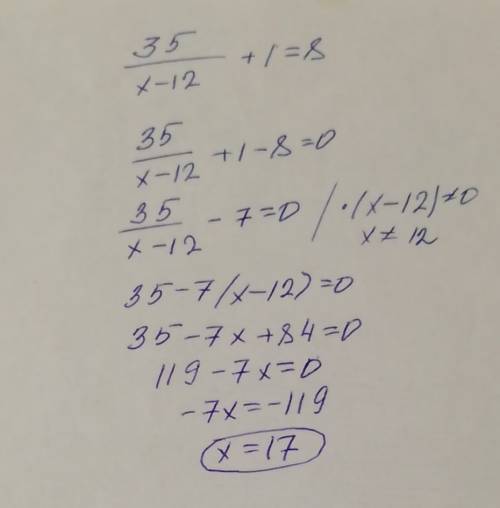 35/(x-12) + 1 = 8
35/(x-12) + 1 - 8 = 0
35/(x-12) - 7 = 0 / ·(x-12) ≠ 0
x ≠ 12
35 - 7(x-12) = 0
35 - 7x + 84 = 0
119 - 7x = 0
-7x = -119
x = 17